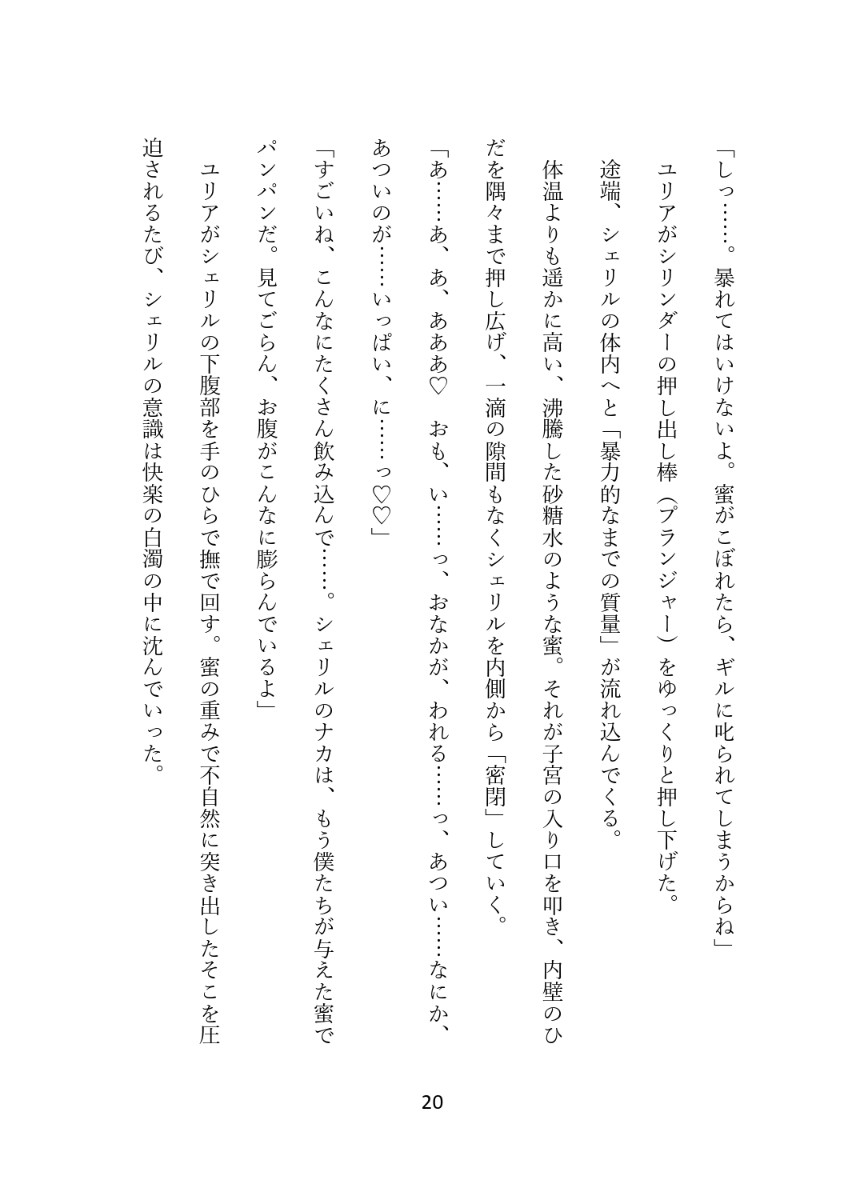 「しっ……。暴れてはいけないよ。蜜がこぼれたら、ギルに叱られてしまうからね」
ユリアがシリンダーの押し出し棒（プランジャー）をゆっくりと押し下げた。
途端、シェリルの体内へと「暴力的なまでの質量」が流れ込んでくる。
体温よりも遥かに高い、沸騰した砂糖水のような蜜。それが子宮の入り口を叩き、内壁のひ
だを隅々まで押し広げ、一滴の隙間もなくシェリルを内側から「密閉」していく。
「あ……あ、あ、あああ♡　おも、い……っ、おなかが、われる……っ、あつい……なにか、
あついのが……いっぱい、に……っ♡♡」
「すごいね、こんなにたくさん飲み込んで……。シェリルのナカは、もう僕たちが与えた蜜で
パンパンだ。見てごらん、お腹がこんなに膨らんでいるよ」
ユリアがシェリルの下腹部を手のひらで撫で回す。蜜の重みで不自然に突き出したそこを圧
迫されるたび、シェリルの意識は快楽の白濁の中に沈んでいった。
20